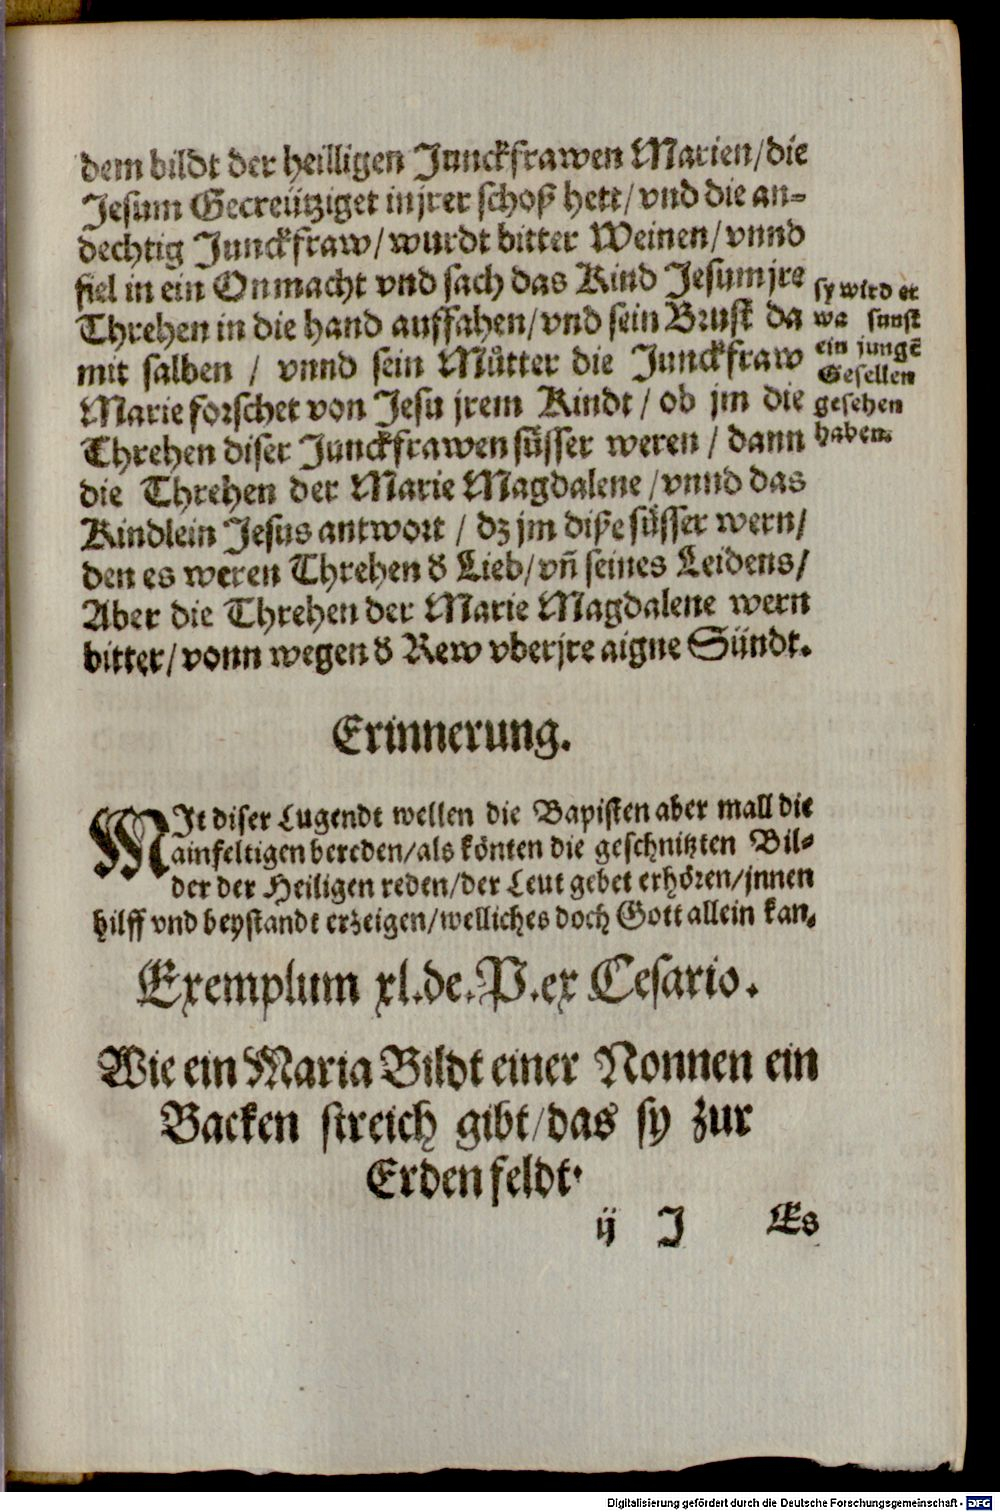 dem bildt der heilligen Junckfrawen Marien/die
Jesum Gecreütziget in jrer schoß hett/ vnd die an-
dechtig Junckfraw/ wurdt bitter Weinen/ vnnd
fiel in ein Onmacht vnd sach das Kind Jesum jre
Threhen in die hand auffahen/ vnd sein Brust da
mit salben / vnnd sein Můtter die Junckfraw
Marie forschet von Jesu jrem Kindt/ ob jm die
Threhen diser Junckfrawen süsser weren / dann
die Threhen der Marie Magdalene /vnnd das
Kindlein Jesus antwort / dz jm diße süsser wern/
den es weren Threhen d̕ Lieb/ vñ seines Leidens/
Aber die Threhen der Marie Magdalene wern
bitter/ vonn wegen d̕ Rew vber jre aigne Sündt.
sy wird et
wa sunst
ein jungē
Gesellen
gesehen
haben.
Erinnerung.
MIt diser Lugendt wellen die Bapisten aber mall die
ainfeltigen bereden/als könten die geschnitzten Bil-
der der Heiligen reden/der Leut gebet erhören/jnnen
hilff vnd beystandt erzeigen/welliches doch Gott allein kan.
Exemplum xl.de.P.ex Cesario.
Wie ein Maria Bildt einer Nonnen ein
Backen streich gibt/das sy zur
Erden feldt.
ij J Es
Digitalisierung gefördert durch die Deutsche Forschungsgemeinschaft - DFG